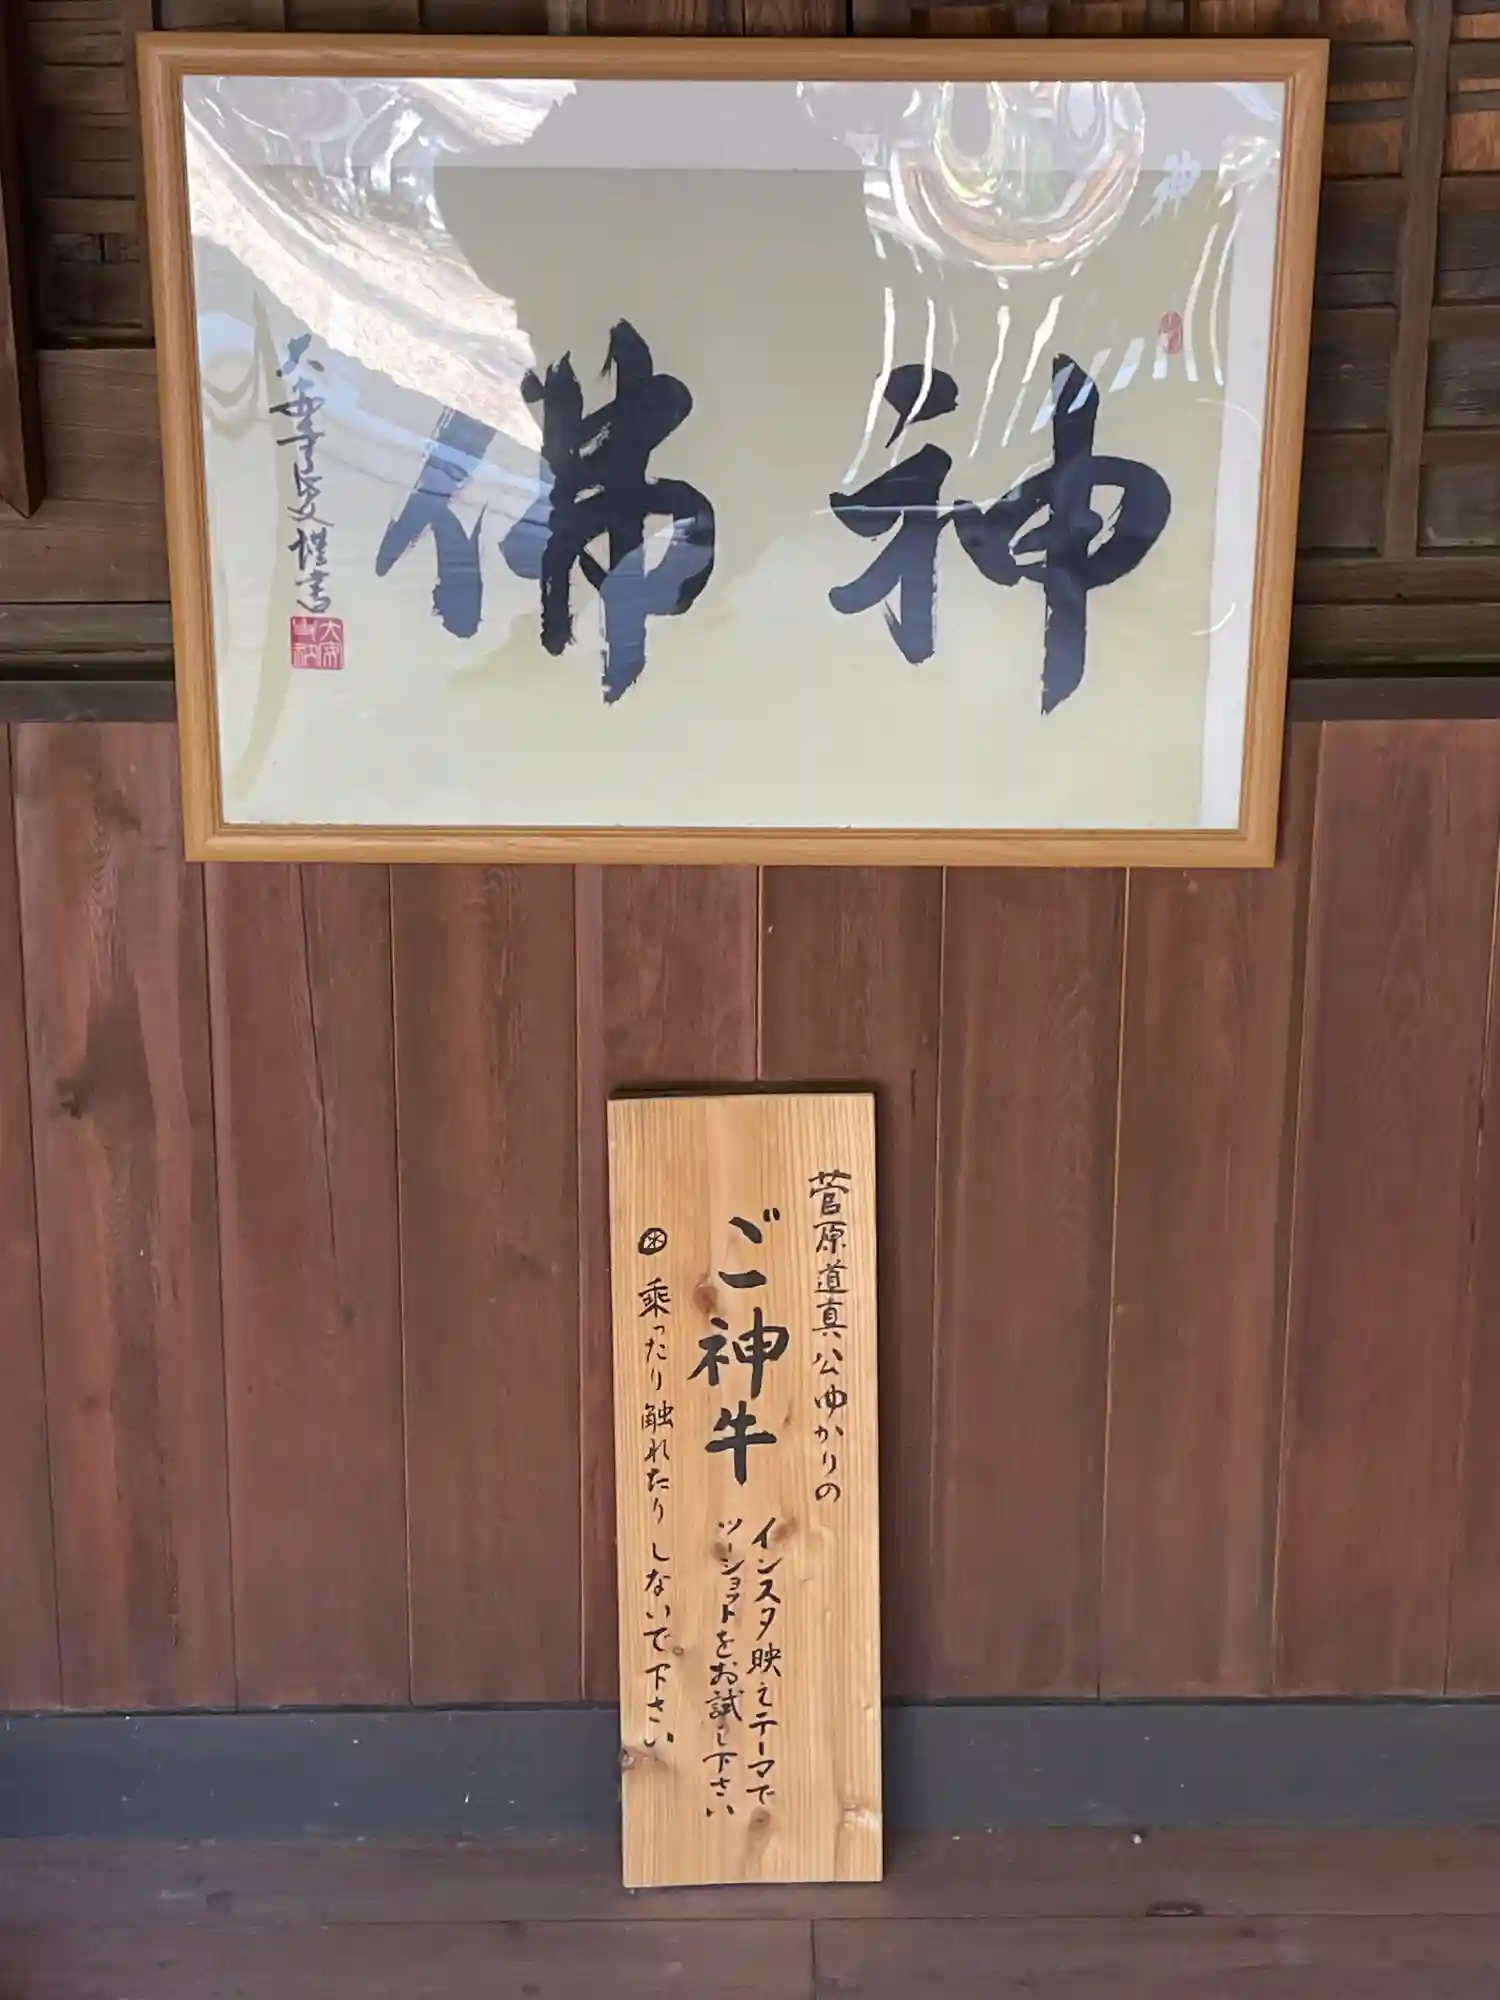 神佛
菅原道真公ゆかりの
ご神牛
インスタ映えテーマで
ツーショットをお試し下さい
乗ったり触れたりしないで。下さい